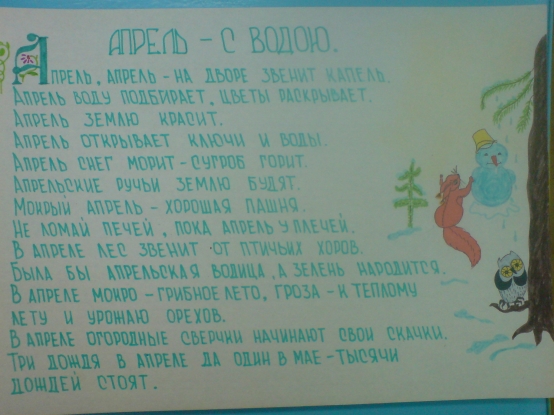 АПРЕЛЬ - С ВОДОЮ.
АПРЕЛЬ, АПРЕЛЬ - НА ДВОРЕ ЗВЕНИТ КАПЕЛЬ.
АПРЕЛЬ ВОДУ ПОДБИРАЕТ, ЦВЕТЫ РАСКРЫВАЕТ.
АПРЕЛЬ ЗЕМЛЮ КРАСИТ.
АПРЕЛЬ ОТКРЫВАЕТ КЛЮЧИ И ВОДЫ.
АПРЕЛЬ СНЕГ МОРИТ - СУГРОБ ГОРИТ.
АПРЕЛЬСКИЕ РУЧЬИ ЗЕМЛЮ БУДЯТ.
МОКРЫЙ АПРЕЛЬ - ХОРОШАЯ ПАШНЯ.
НЕ ЛОМАЙ ПЕЧЕЙ, ПОКА АПРЕЛЬ У ПЛЕЧЕЙ.
В АПРЕЛЕ ЛЕС ЗВЕНИТ ОТ ПТИЧЬИХ ХОРОВ.
БЫЛА БЫ АПРЕЛЬСКАЯ ВОДИЦА, А ЗЕЛЕНЬ НАРОДИТСЯ.
В АПРЕЛЕ МОКРО - ГРИБНОЕ ЛЕТО, ГРОЗА - К ТЕПЛОМУ
ЛЕТУ И УРОЖАЮ ОРЕХОВ.
В АПРЕЛЕ ОГОРОДНЫЕ СВЕРЧКИ НАЧИНАЮТ СВОИ СКАЧКИ.
ТРИ ДОЖДЯ В АПРЕЛЕ ДА ОДИН В МАЕ - ТЫСЯЧИ
ДОЖДЕЙ СТОЯТ.